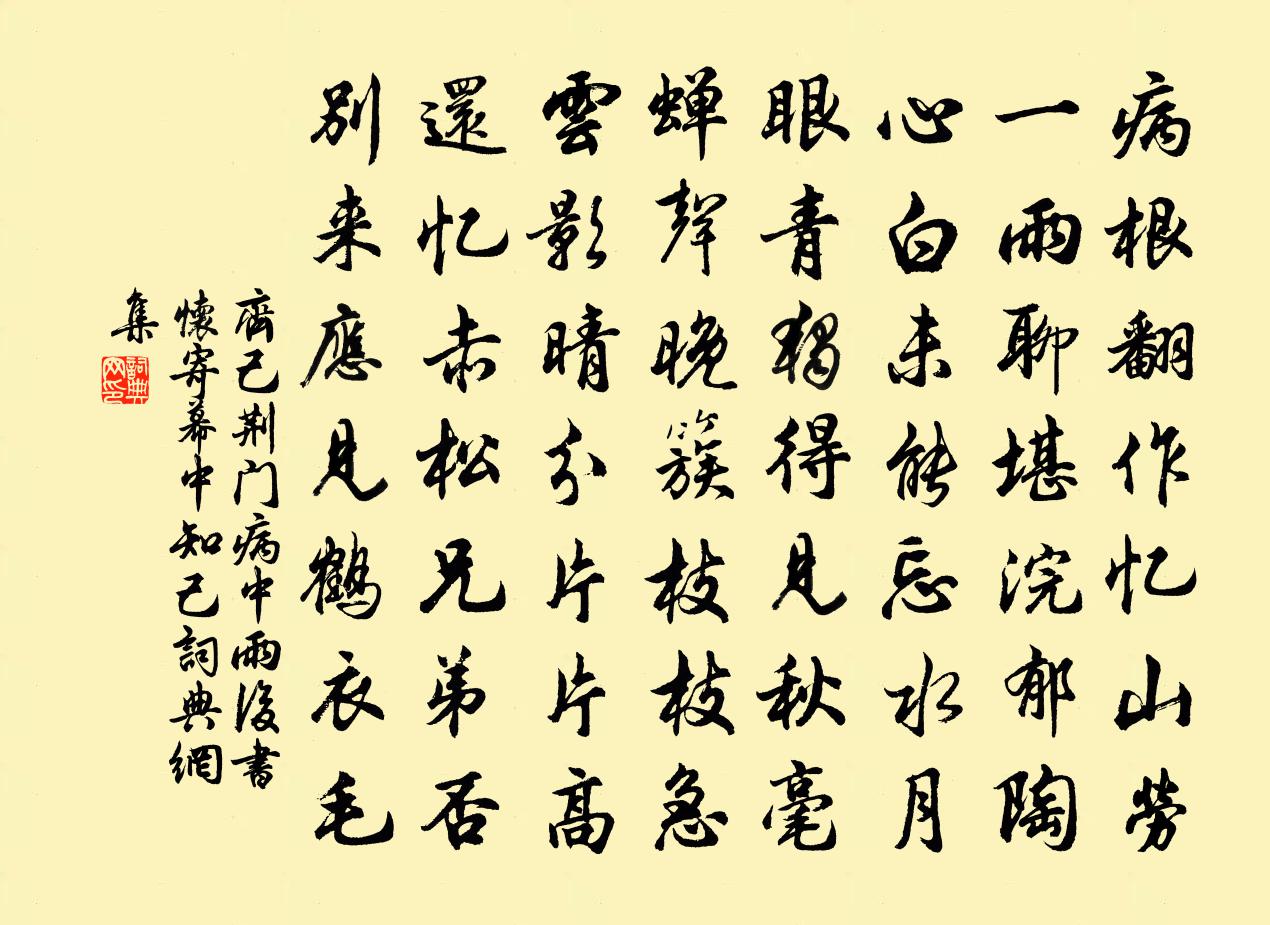 病根翻作忆山劳
一雨聊堪浣郁陶
心白未能忘水月
眼青独得见秋毫
蝉声晚簇枝枝急
雲影晴分片片高
還忆赤松兄弟否
别来應见鹤衣毛
齊己荆门病中雨後書
懷寄幕中知己詞典網
集
詞典网印